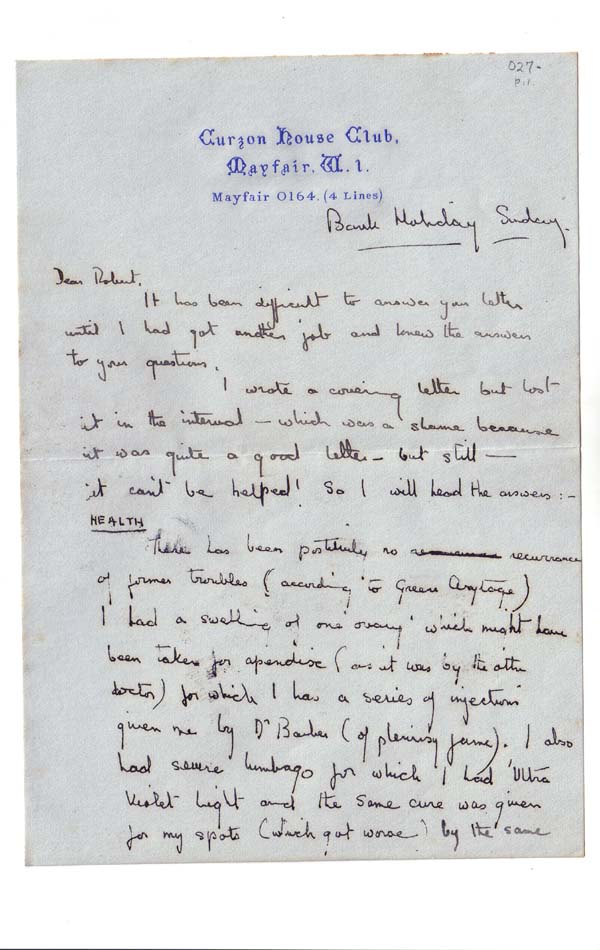 027-
p.1.
Curzon House Club,
Mayfair, W. 1.
Mayfair 0164. (4 Lines)
Bank Holiday Sunday.
Dear Robert,
It has been difficult to answer your letter
until I had got another job and knew the answers
to your questions.
I wrote a covering letter but lost
it in the interval – which was a shame because
it was quite a good letter – but still —
it can't be helped! So I will head the answers :-
HEALTH
There has been positively no recurrance
of former troubles (according to Green Armytage)
I had a swelling of one 'ovary' which might have
been taken for apendise (as it was by the other
doctor) for which I has a series of injections
given me by Dr Barber (of plenrisy fame). I also
had severe lumbago for which I had 'Ultra
Violet Light and the same cure was given
for my spots (which got worse) by the same